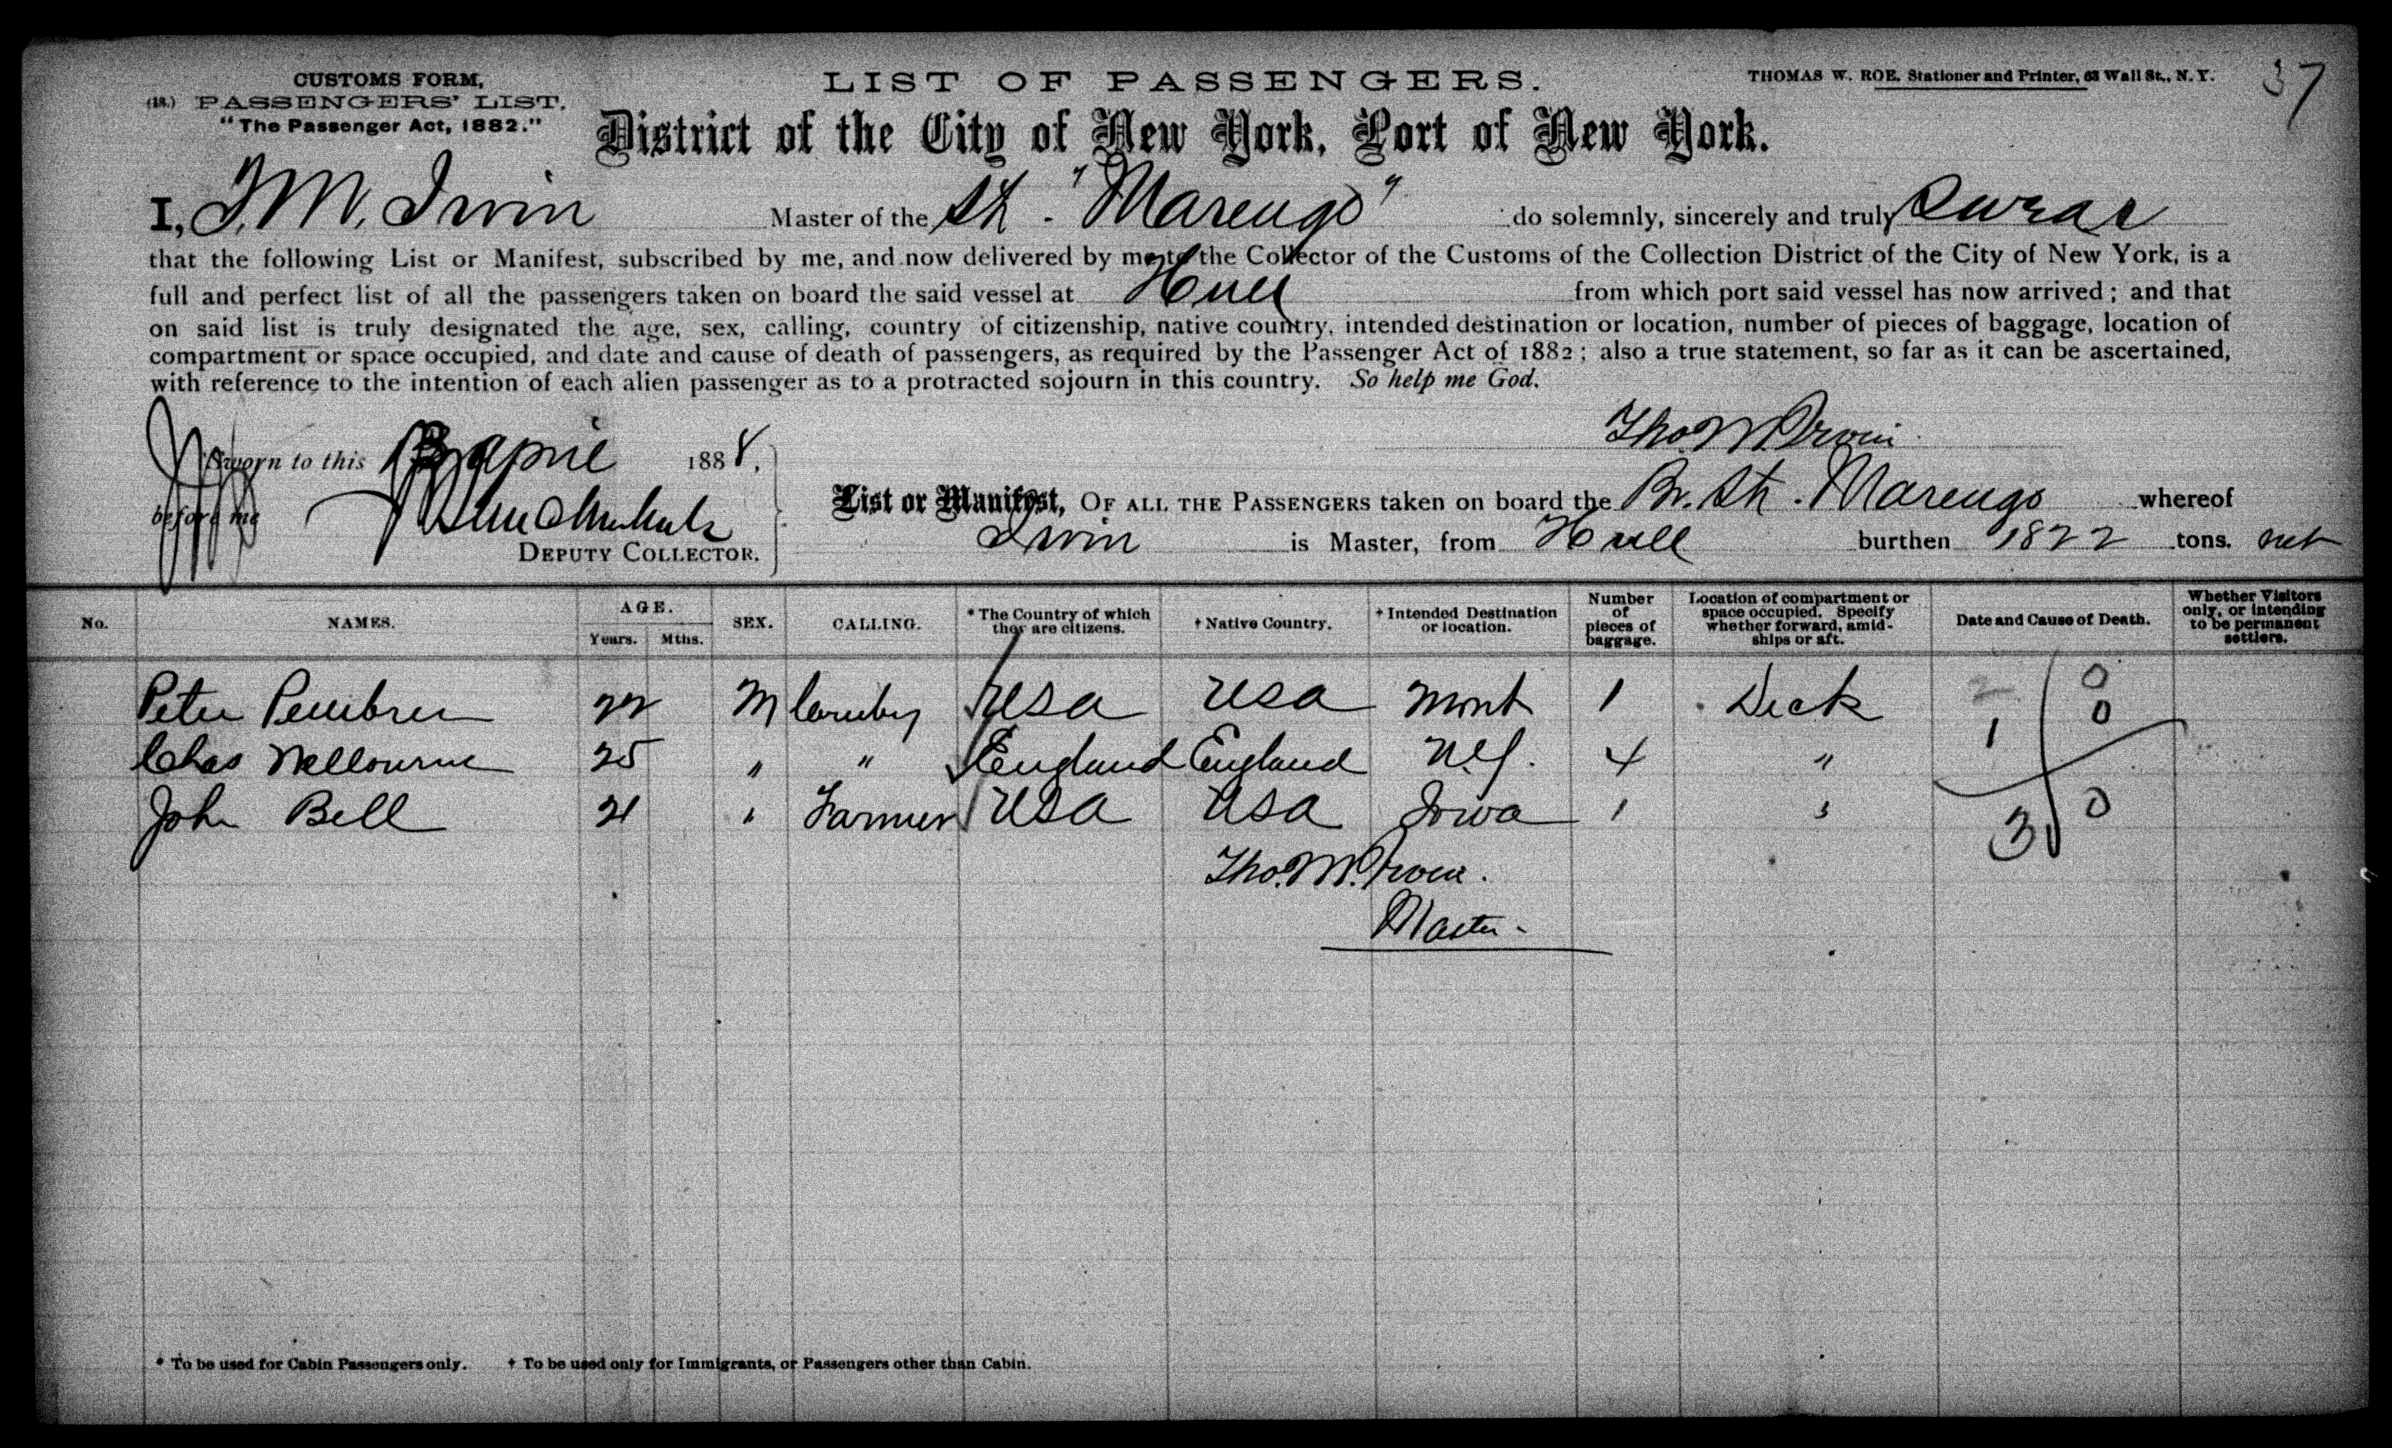 CUSTOMS FORM,
(18.) PASSENGERS' LIST.
"The Passenger Act, 1882."
LIST OF PASSENGERS.
THOMAS W. ROE, Stationer and Printer, 63 Wall St., N. Y.
37
District of the City of New York, Port of New York.
I, T. M. Irwin Master of the Str. "Marengo" do solemnly, sincerely and truly swear
that the following List or Manifest, subscribed by me, and now delivered by me to the Collector of the Customs of the Collection District of the City of New York, is a
full and perfect list of all the passengers taken on board the said vessel at Hull from which port said vessel has now arrived; and that
on said list is truly designated the age, sex, calling, country of citizenship, native country, intended destination or location, number of pieces of baggage, location of
compartment or space occupied, and date and cause of death of passengers, as required by the Passenger Act of 1882; also a true statement, so far as it can be ascertained,
with reference to the intention of each alien passenger as to a protracted sojourn in this country. So help me God.
Tho. M. Irwin
Sworn to this April 1888,
before me
DEPUTY COLLECTOR.
List or Manifest, OF ALL THE PASSENGERS taken on board the Br. Str. Marengo whereof
Irwin is Master, from Hull burthen 1822 tons. net
No. NAMES. AGE. Years. Mths. SEX. CALLING. * The Country of which they are citizens. † Native Country. † Intended Destination or location. Number of pieces of baggage. Location of compartment or space occupied. Specify whether forward, amidships or aft. Date and Cause of Death. Whether Visitors only, or intending to be permanent settlers.
Peter 22 M USA USA Mont 1 Deck 2 0
Chas Melbourne 25 " " England England N.Y. 4 " 1 0
John Bell 21 " Farmer USA USA Iowa 1 " 3 0
Tho. M. Irwin.
Master.
* To be used for Cabin Passengers only. † To be used only for Immigrants, or Passengers other than Cabin.